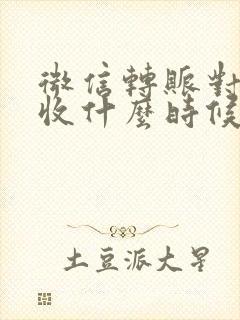 微信轉賬對
收什麼時候
土豆派大星